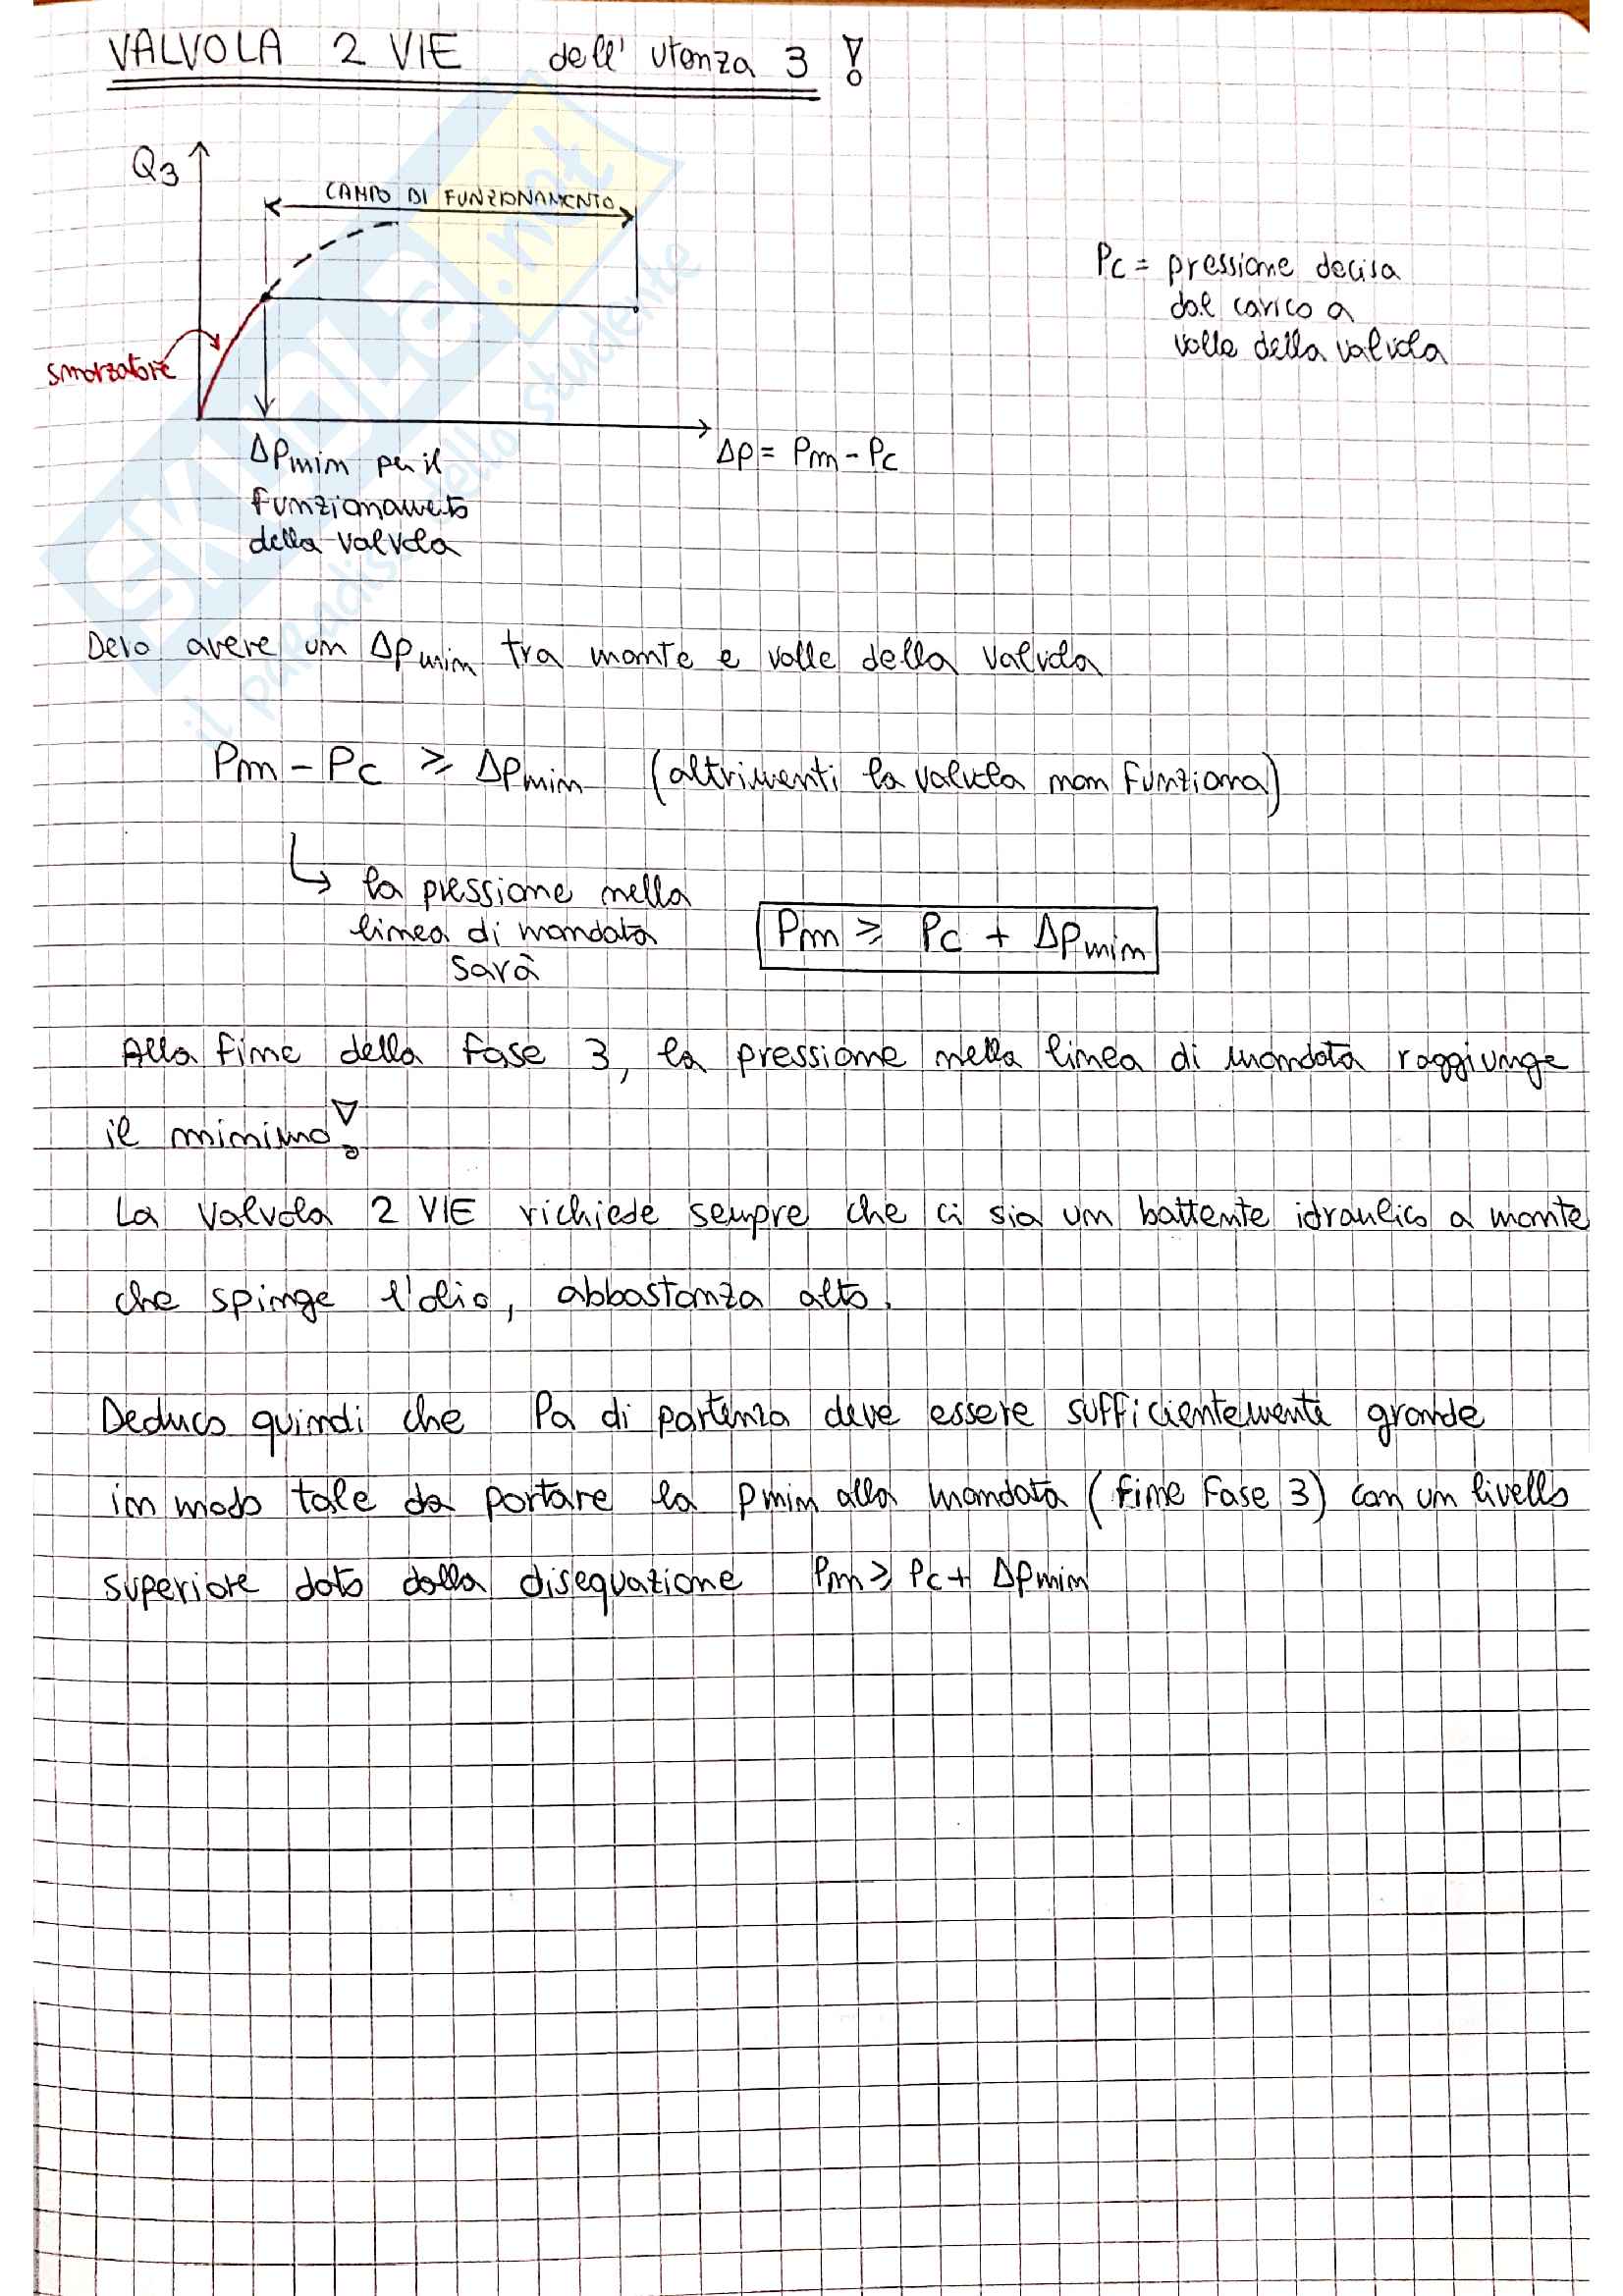 VALVOLA 2 VIE dell' utenza 3 !
Q3
CAMPO DI FUNZIONAMENTO
Pc = pressione decisa
dal carico a
valle della valvola
smorzatore
Δp = Pm - Pc
ΔPmin per il
funzionamento
della valvola
Devo avere un ΔPmin tra monte e valle della valvola
Pm - Pc ⩾ ΔPmin (altrimenti la valvola non funziona)
↳ la pressione nella
linea di mandata
sarà
Pm ⩾ Pc + ΔPmin
Alla fine della fase 3, la pressione nella linea di mandata raggiunge
il minimo!
La valvola 2 VIE richiede sempre che ci sia un battente idraulico a monte
che spinge l'olio, abbastanza alto.
Deduco quindi che Pa di partenza deve essere sufficientemente grande
in modo tale da portare la pmin alla mandata (fine Fase 3) con un livello
superiore dato dalla disequazione Pm ⩾ Pc + ΔPmin
SKUOLA.net
il paradiso dello studente